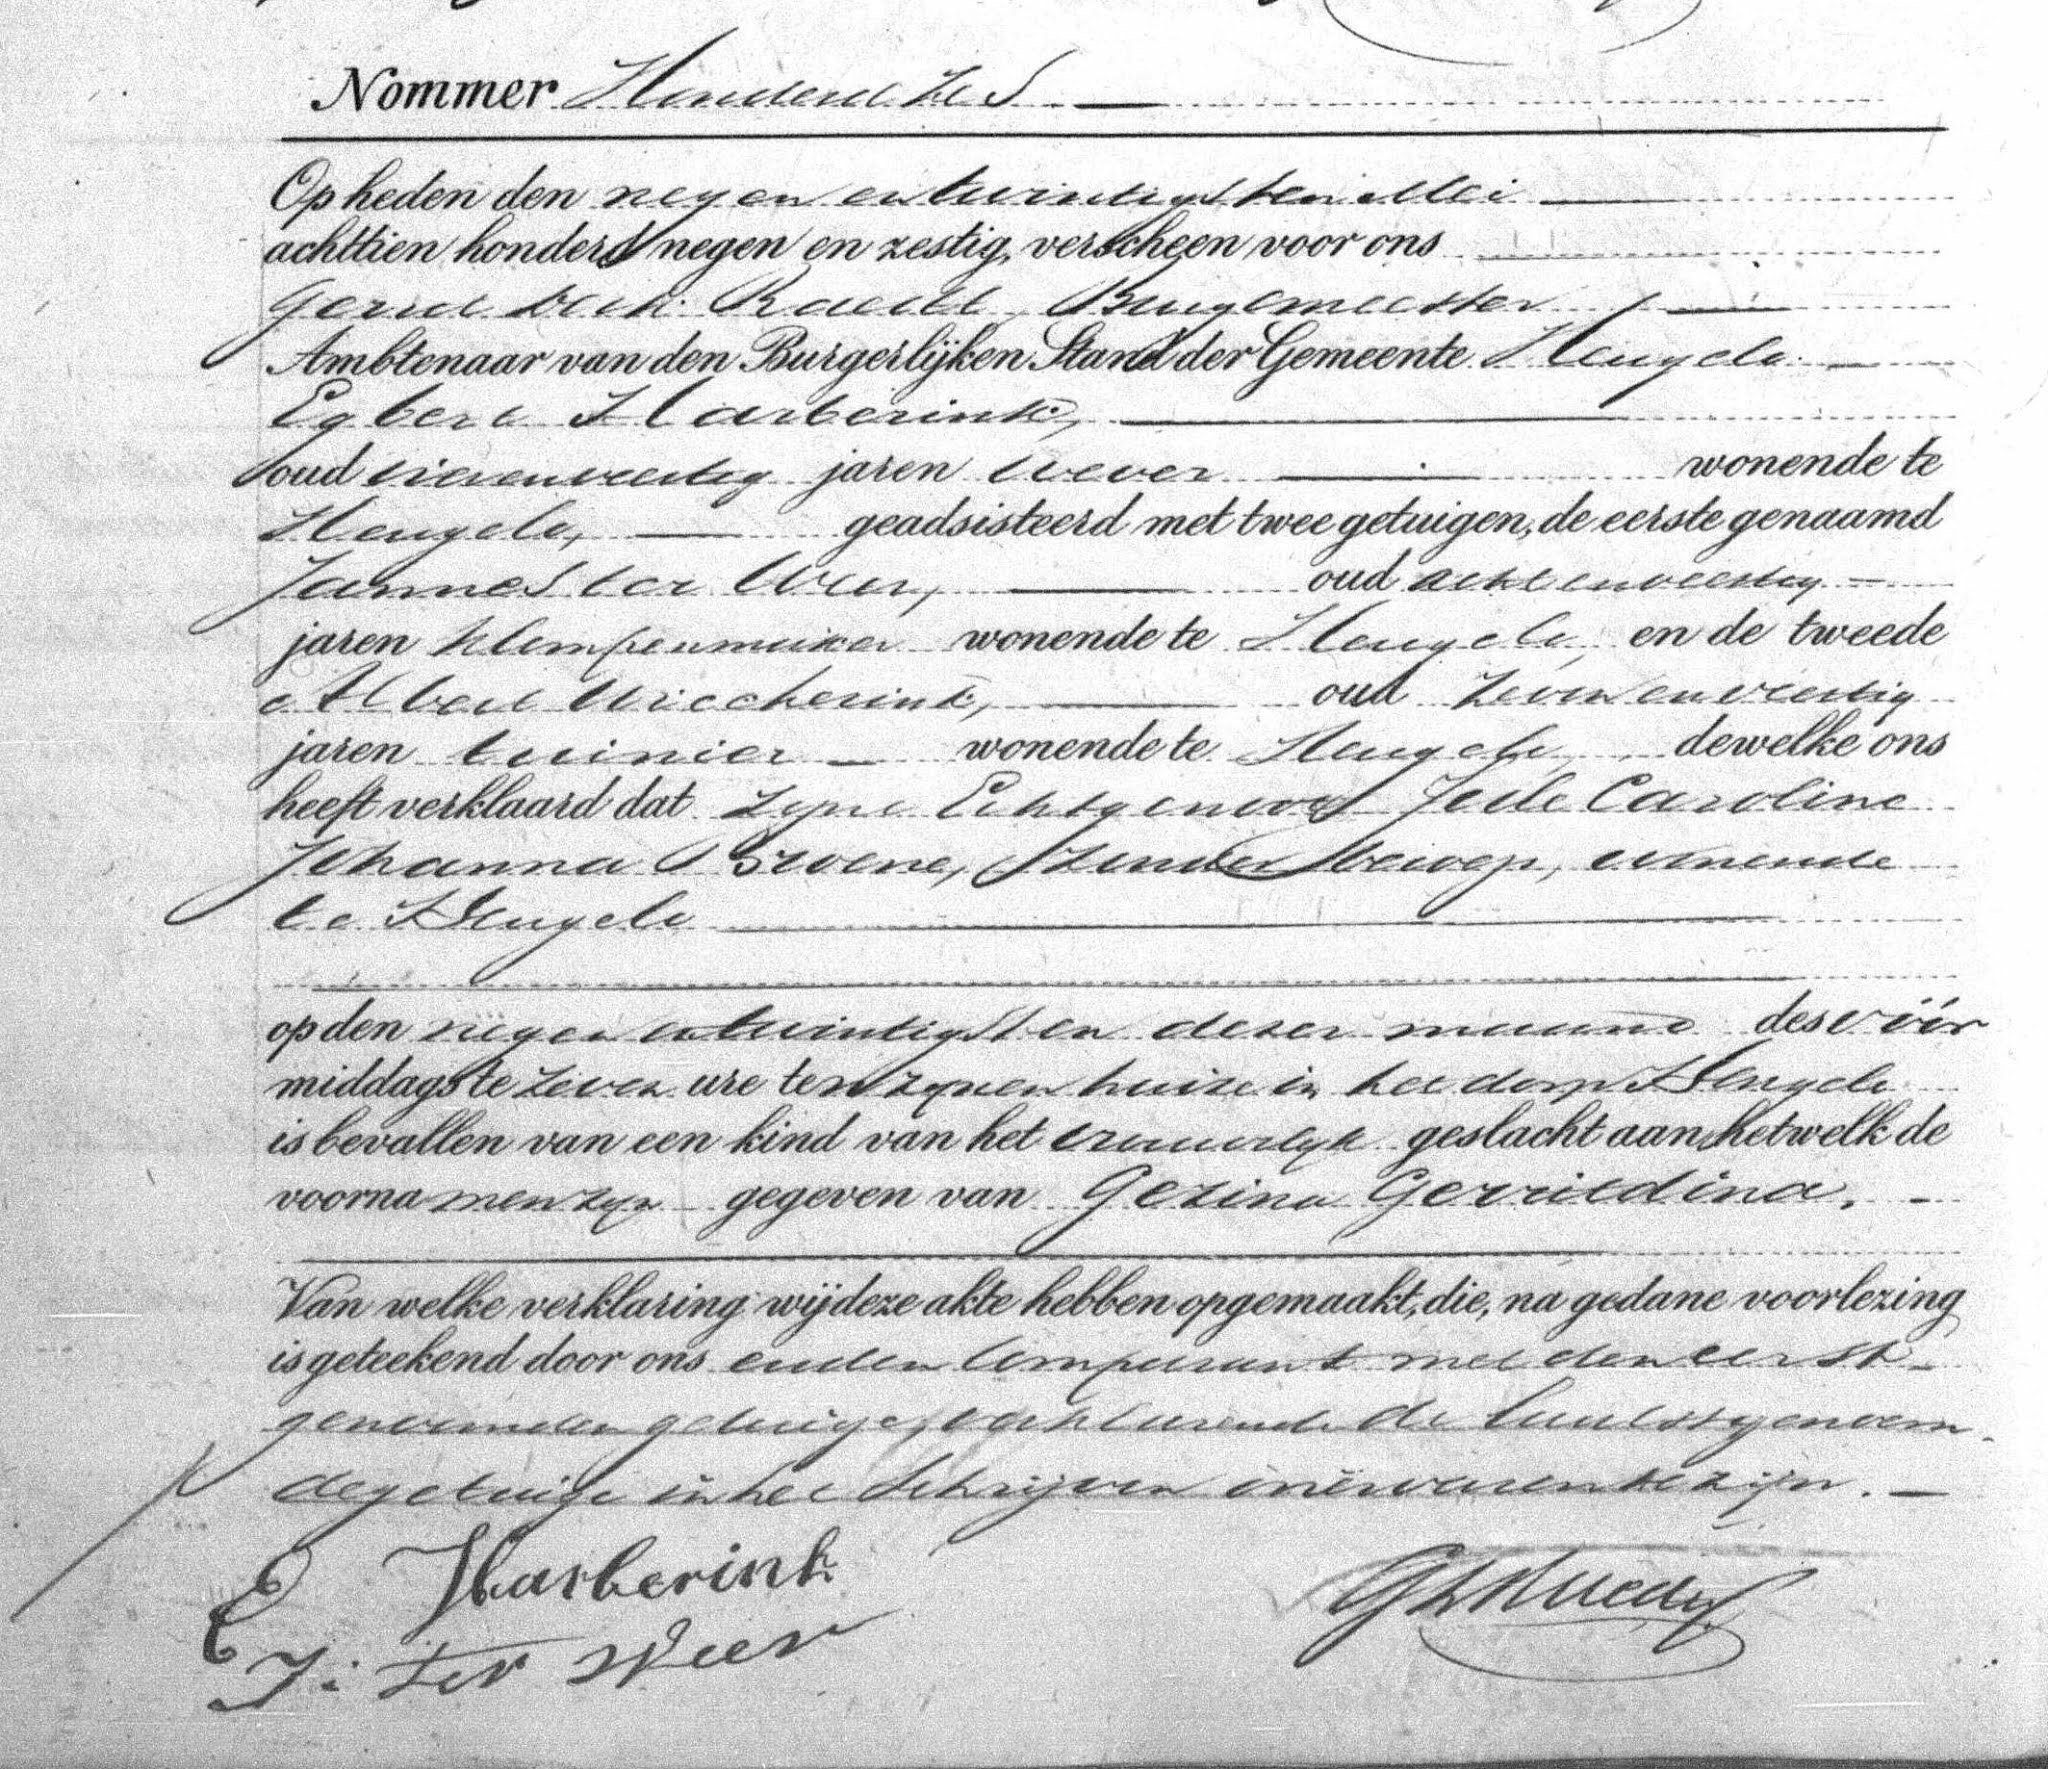 Nommer Honderd zes
Op heden den negen en twintigsten Mei
achttien honderd negen en zestig, verscheen voor ons
Gerrit Burgemeester,
Ambtenaar van den Burgerlijken Stand der Gemeente Hengelo.
Egbert Harberink,
oud vierenveertig jaren wever wonende te
Hengelo, geadsisteerd met twee getuigen, de eerste genaamd
Jannes ter Weer, oud achtenveertig
jaren klompenmaker wonende te Hengelo, en de tweede
Albert Wiecherink, oud zevenenveertig
jaren tuinier wonende te Hengelo, dewelke ons
heeft verklaard dat zijne Echtgenoot Jede Caroline
Johanna Broene, zonder beroep, wonende
te Hengelo
op den negen en twintigsten dezer maand des vóór
middags te zeven ure ten zijnen huize in het dorp Hengelo
is bevallen van een kind van het vrouwelijk geslacht aan hetwelk de
voornamen zijn gegeven van Gezina Gerritdina.
Van welke verklaring wij deze akte hebben opgemaakt, die, na gedane voorlezing
is geteekend door ons en den Comparant met den eerst
genoemden getuige, verklarende de laatstgenoem
de getuige in het schrijven onervaren te zijn.
E Harberink
J: ter Weer